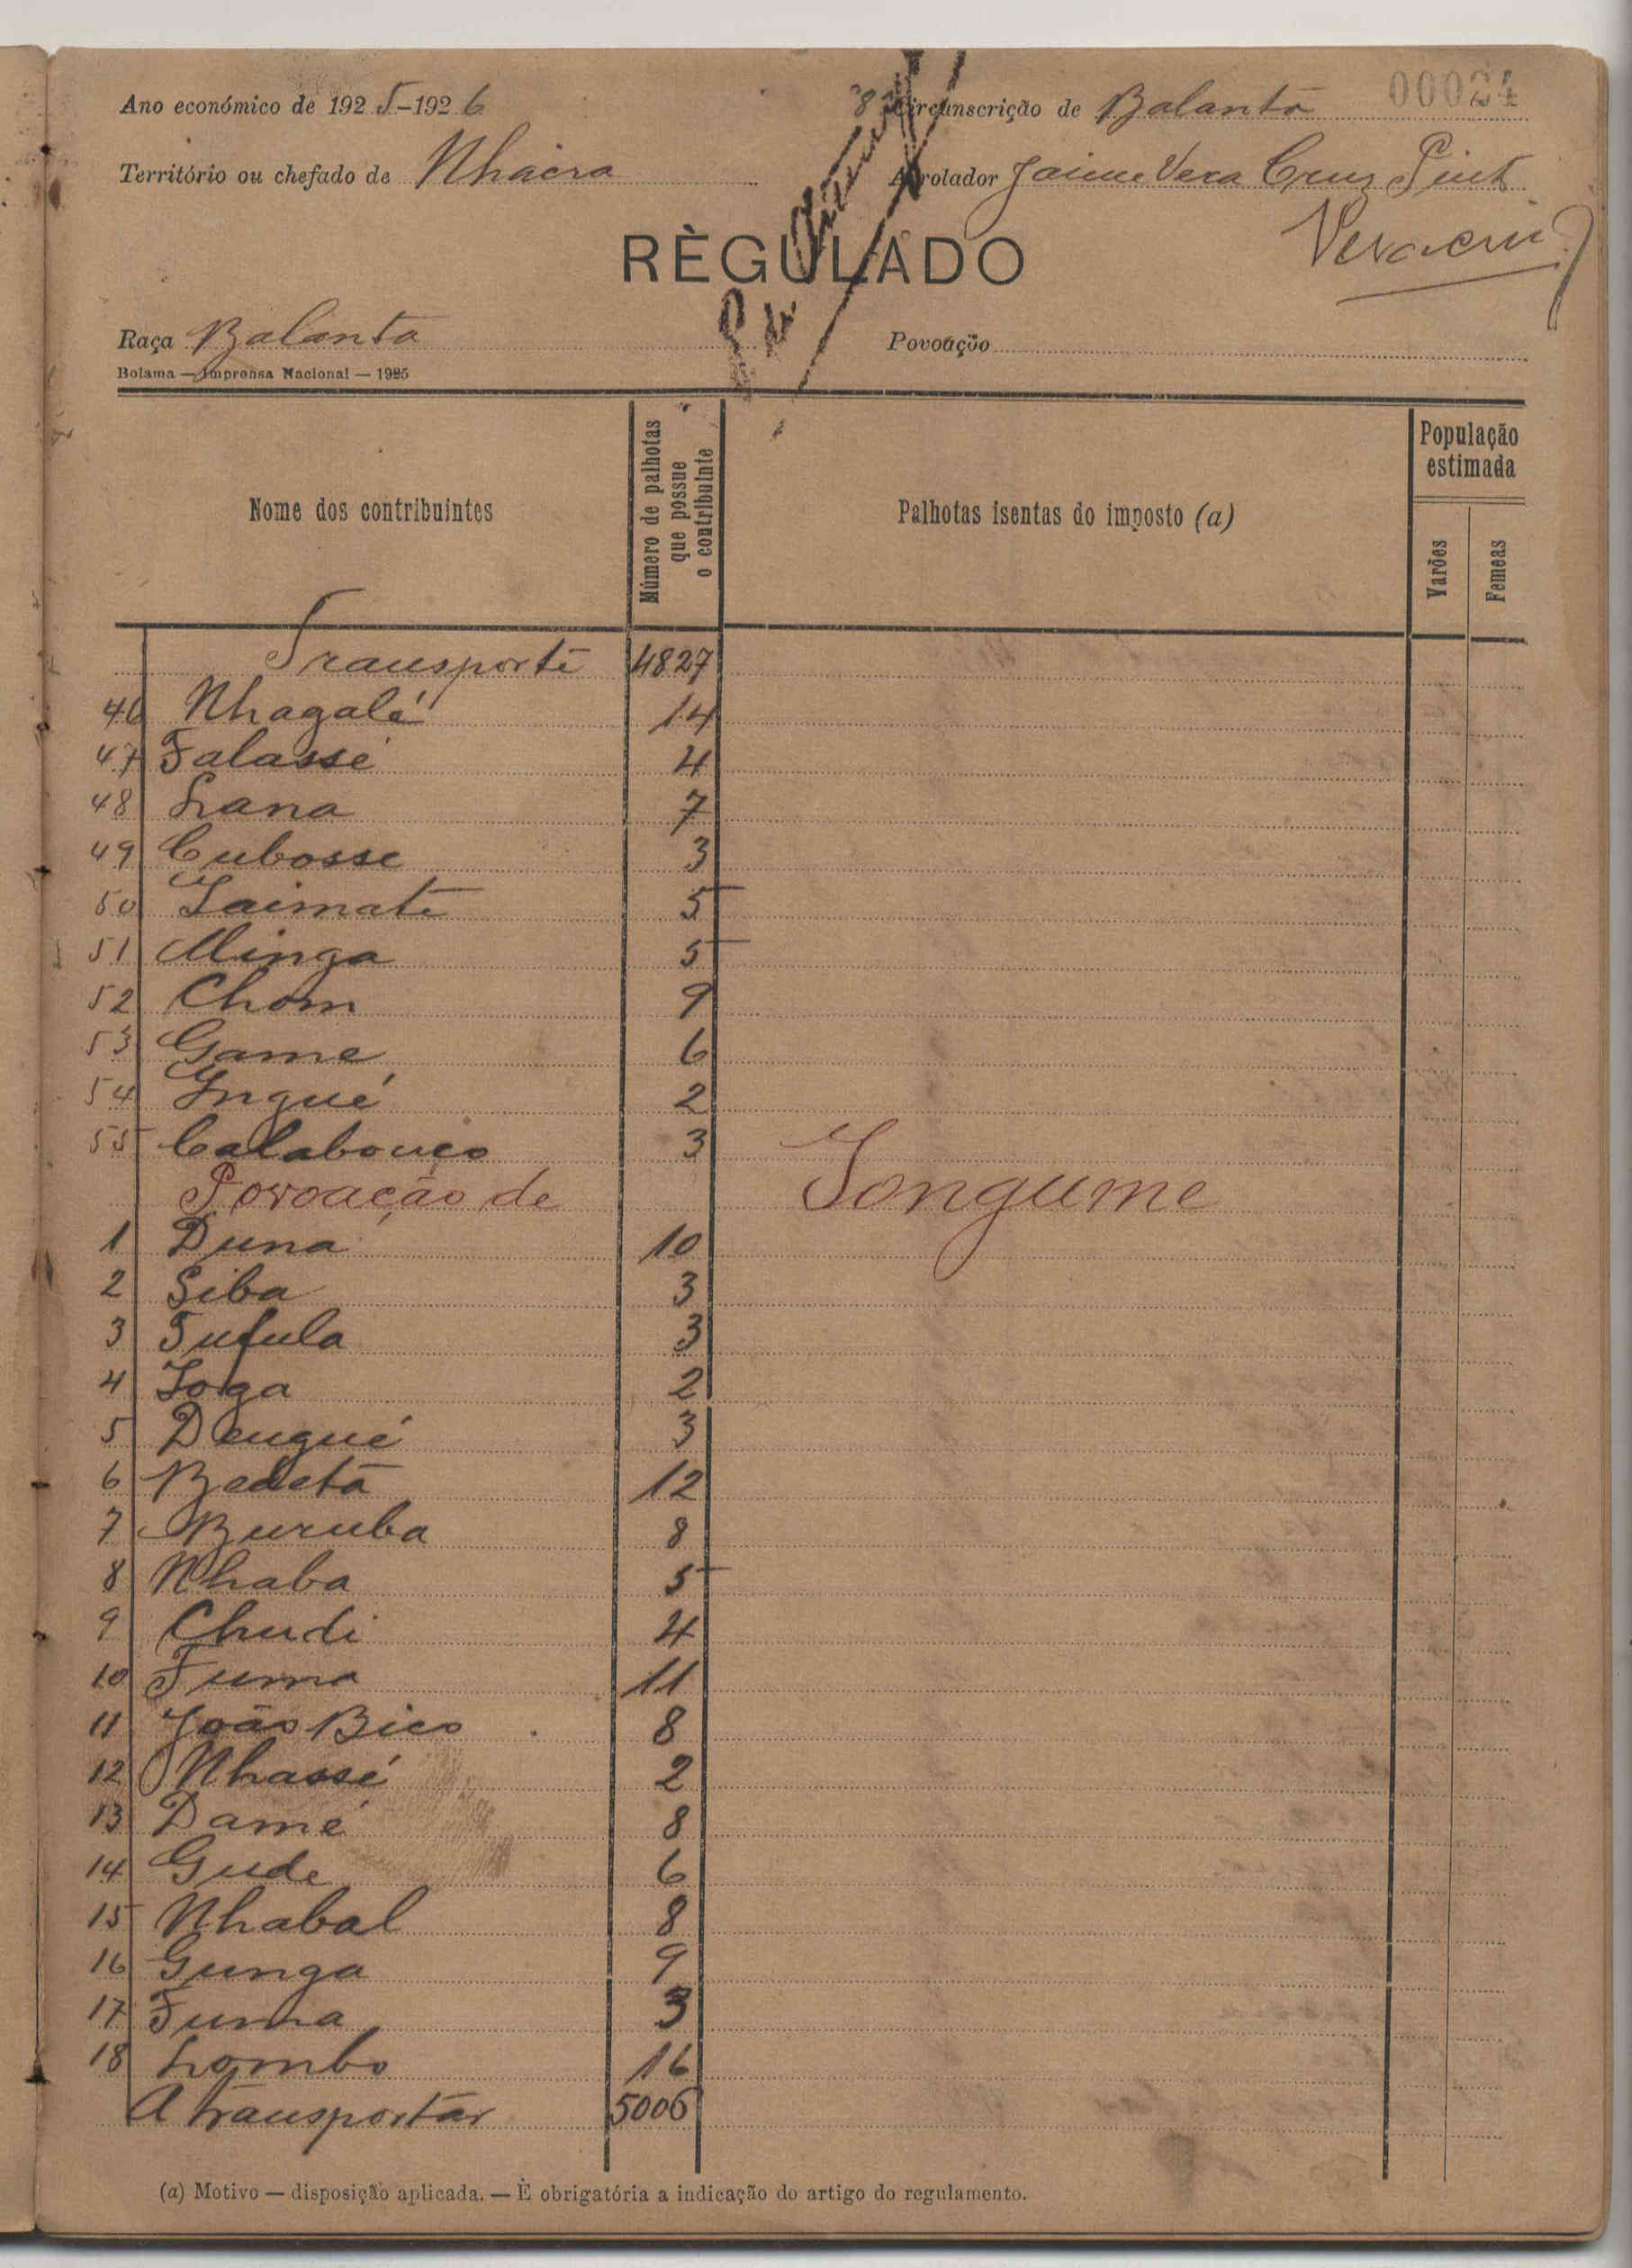 00024
Ano económico de 1925-1926
8ª Circunscrição de Balanta
Território ou chefado de Nhacra
Arrolador Jaime Vera Cruz Pint
REGULADO
Raça Balanta
Povoação
Bolama — Imprensa Nacional — 1925
Nome dos contribuintes
Número de palhotas que possue o contribuinte
Palhotas isentas do imposto (a)
População estimada
Varões
Femeas
Transporte 4827
46 Nhagalé 14
47 Falassé 4
48 Lana 7
49 Cubosse 3
50 Iaimate 5
51 Minga 5
52 Chom 9
53 Game 6
54 Ingué 2
55 Calabouço 3
Povoação de Iongume
1 Duna 10
2 Siba 3
3 Tufula 3
4 Ioga 2
5 Dengué 3
6 Bedeta 12
7 Buruba 8
8 Nhaba 5
9 Chudi 4
10 Fuma 11
11 João Bico 8
12 Nhassé 2
13 Damé 8
14 Gude 6
15 Nhabal 8
16 Gunga 9
17 Fuma 3
18 Lombo 16
A transportar 5006
(a) Motivo — disposição aplicada. — É obrigatória a indicação do artigo do regulamento.